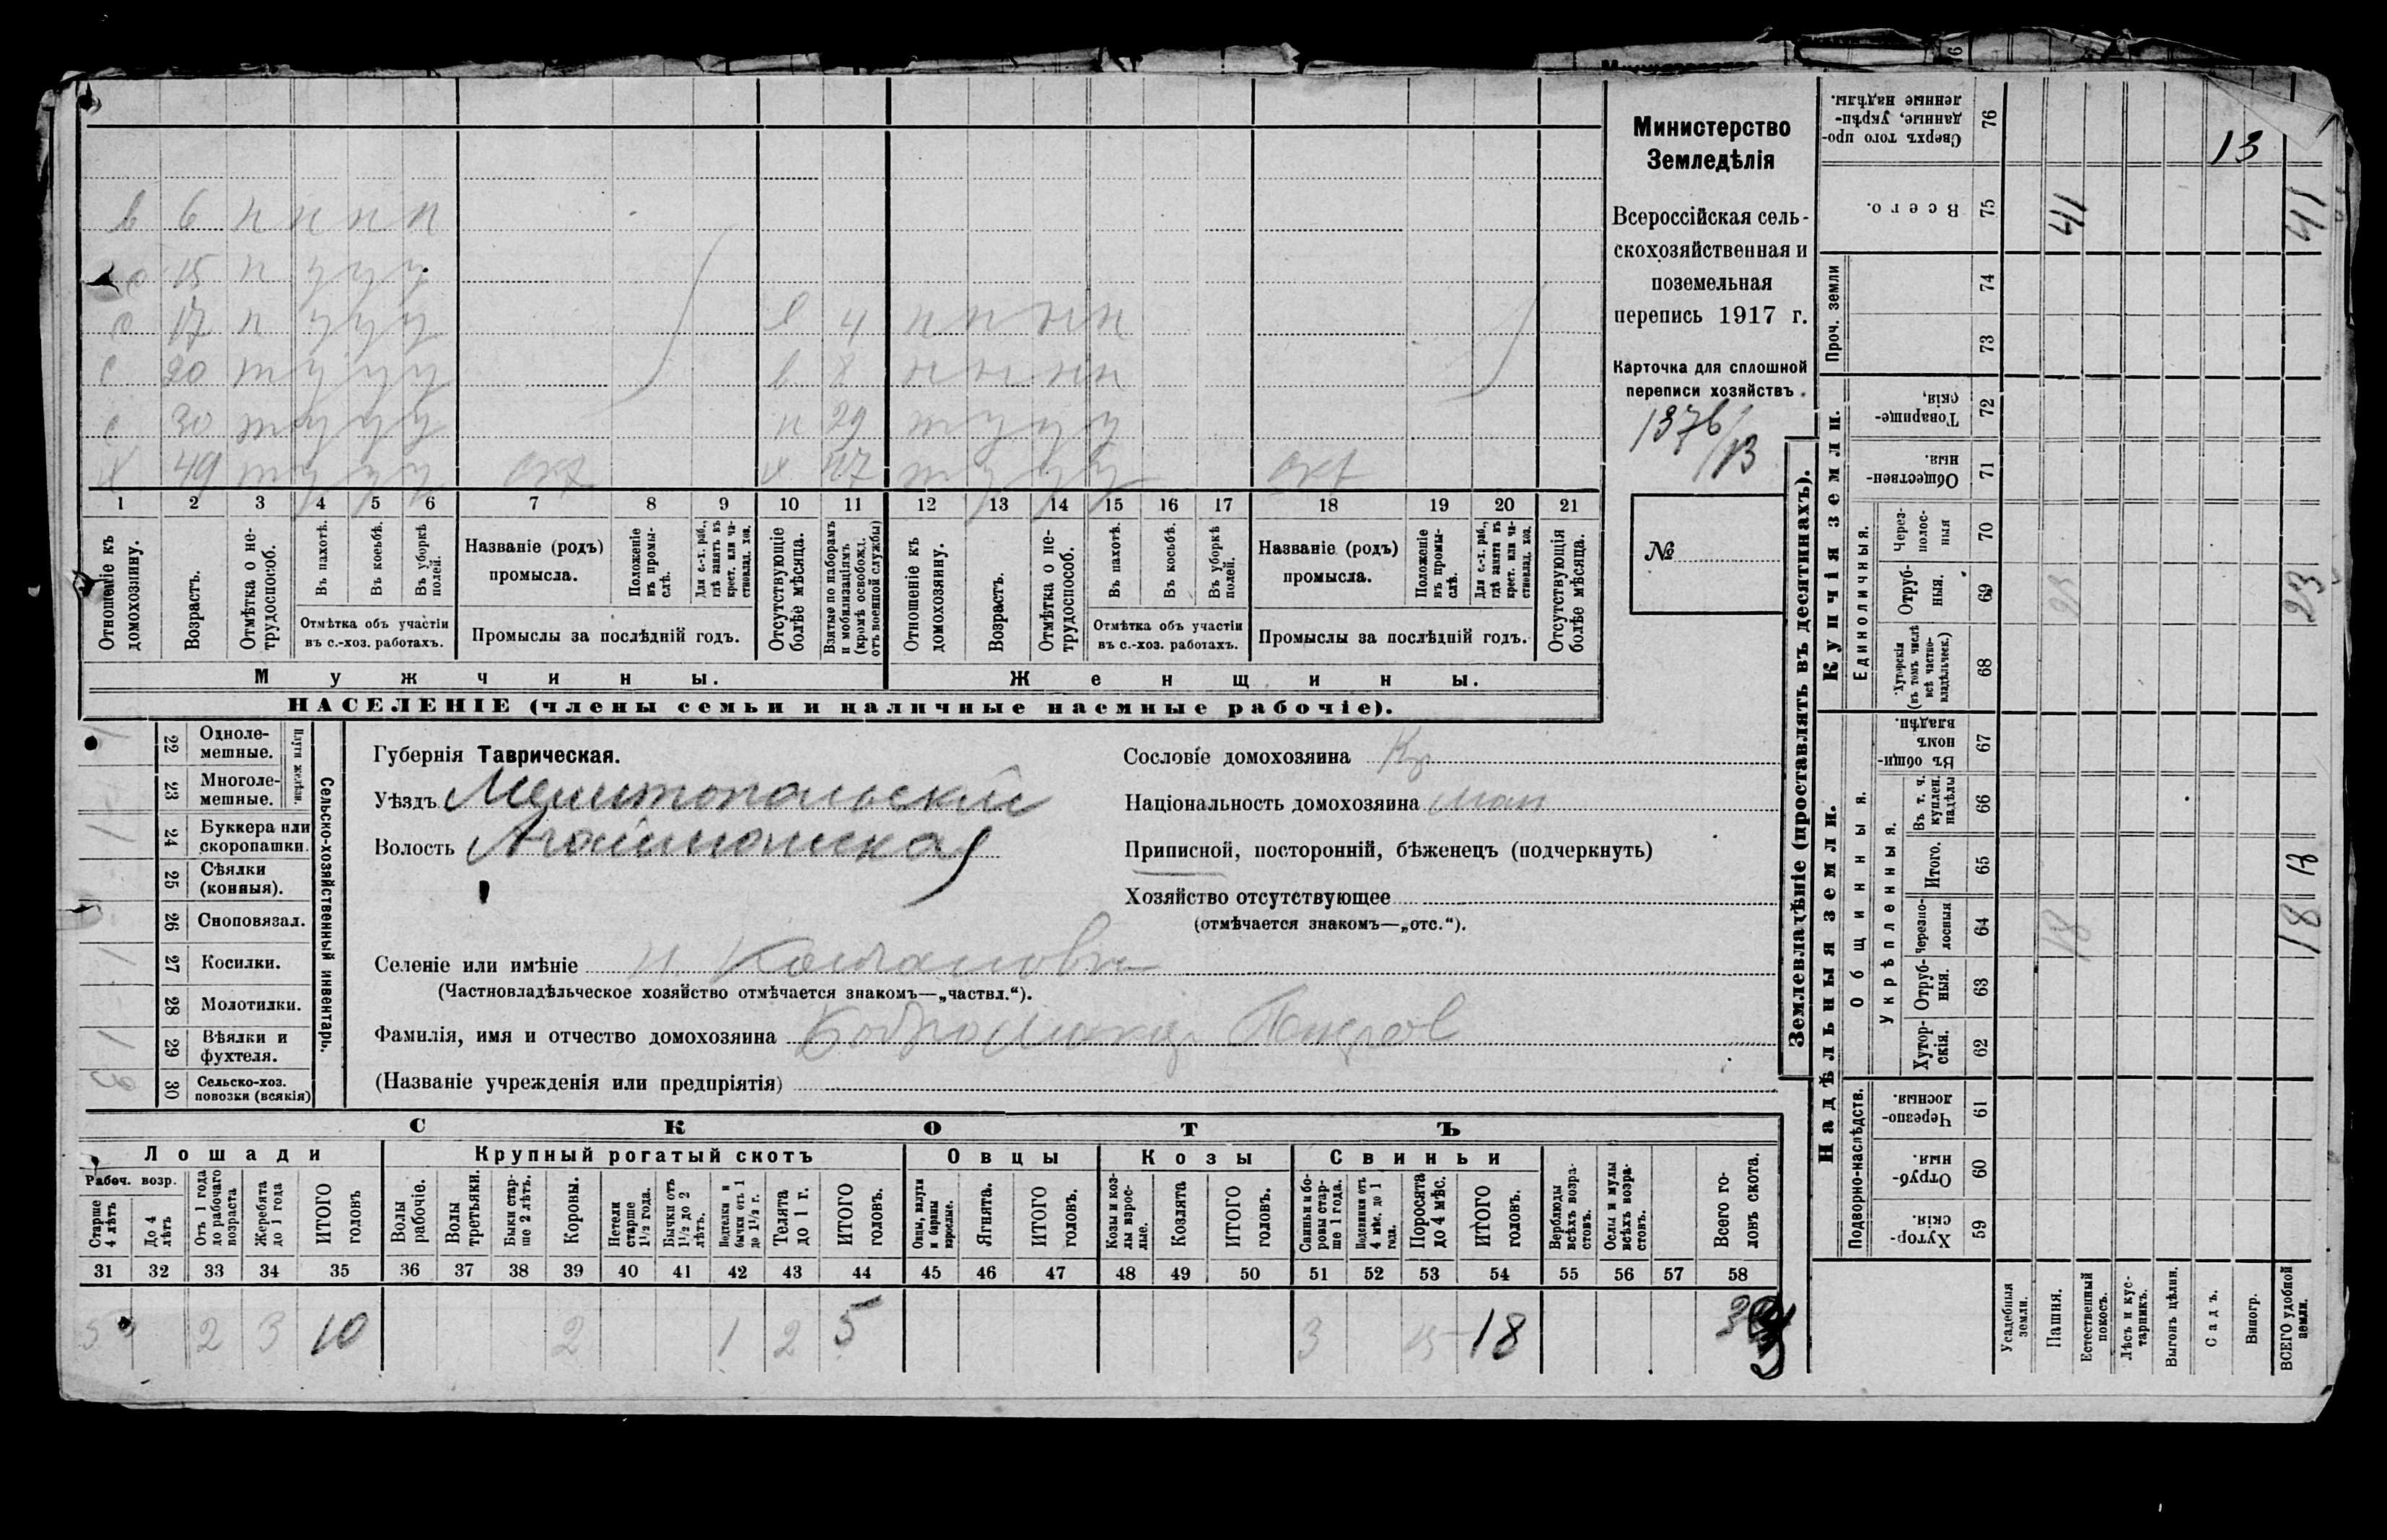 Министерство
Земледѣлія
Всероссійская сель-
скохозяйственная и
поземельная
перепись 1917 г.
Карточка для сплошной
переписи хозяйствъ.
1376/13
№
в 6 н н н н
с 15 п у у у
с 17 п у у у
с 20 т у у у
с 30 т у у у
х 49 т у у у
в 4 н н н н
в 8 н н н н
н 29 т у у у
х т у у у
1 2 3 4 5 6 7 8 9 10 11 12 13 14 15 16 17 18 19 20 21
Отношеніе къ домохозяину.
Возрастъ.
Отмѣтка о не-трудоспособ.
Въ пахотѣ.
Въ косьбѣ.
Въ уборкѣ полей.
Отмѣтка объ участіи
въ с.-хоз. работахъ.
Названіе (родъ)
промысла.
Положеніе въ промы-слѣ.
Для с.-х. раб., гдѣ занятъ въ крест. или ча-стновлад. хоз.
Промыслы за послѣдній годъ.
Отсутствующіе болѣе мѣсяца.
Взятые по наборамъ и мобилизаціямъ (кромѣ освобожд. отъ военной службы)
Отношеніе къ домохозяину.
Возрастъ.
Отмѣтка о не-трудоспособ.
Въ пахотѣ.
Въ косьбѣ.
Въ уборкѣ полей.
Отмѣтка объ участіи
въ с.-хоз. работахъ.
Названіе (родъ)
промысла.
Положеніе въ промы-слѣ.
Для с.-х. раб., гдѣ занята въ крест. или ча-стновлад. хоз.
Промыслы за послѣдній годъ.
Отсутствующія болѣе мѣсяца.
Мужчины.
Женщины.
НАСЕЛЕНІЕ (члены семьи и наличные наемные рабочіе).
Сельско-хозяйственный инвентарь.
Плуги желѣзн.
22 Одноле-мешные.
23 Многоле-мешные.
24 Буккера или скоропашки.
25 Сѣялки (конныя).
26 Сноповязал.
27 Косилки.
28 Молотилки.
29 Вѣялки и фухтеля.
30 Сельско-хоз. повозки (всякія)
Губернія Таврическая.
Уѣздъ Мелитопольскій
Волость
Селеніе или имѣніе
(Частновладѣльческое хозяйство отмѣчается знакомъ—„частвл.“).
Фамилія, имя и отчество домохозяина
(Названіе учрежденія или предпріятія)
Сословіе домохозяина Кр
Національность домохозяина мал
Приписной, посторонній, бѣженецъ (подчеркнуть)
Хозяйство отсутствующее
(отмѣчается знакомъ—„отс.“).
СКОТЪ
Лошади
Рабоч. возр.
Старше 4 лѣтъ
До 4 лѣтъ
Отъ 1 года до рабочаго возраста
Жеребята до 1 года
ИТОГО головъ
Крупный рогатый скотъ
Волы рабочіе.
Волы третьяки.
Быки стар-ше 2 лѣтъ.
Коровы.
Нетели старше 1½ года.
Бычки отъ 1½ до 2 лѣтъ.
Подтелки и бычки отъ 1 до 1½ г.
Телята до 1 г.
ИТОГО головъ.
Овцы
Овцы, валухи и бараны взрослые.
Ягнята.
ИТОГО головъ.
Козы
Козы и коз-лы взрос-лые.
Козлята
ИТОГО головъ.
Свиньи
Свиньи и бо-ровы стар-ше 1 года.
Подсвинки отъ 4 мѣс. до 1 года.
Поросята до 4 мѣс.
ИТОГО головъ.
Верблюды всѣхъ возра-стовъ.
Ослы и мулы всѣхъ возра-стовъ.
Всего го-ловъ скота.
31 32 33 34 35 36 37 38 39 40 41 42 43 44 45 46 47 48 49 50 51 52 53 54 55 56 57 58
5 2 3 10 2 1 2 5 3 15 18
Землевладѣніе (проставлять въ десятинахъ).
Купчія земли.
Сверхъ того про-данные, укрѣп-ленные надѣлы. 76
Всего. 75
Проч. земли 74 73
Товарище-скія, 72
Обществен-ныя. 71
Единоличныя.
Через-полос-ныя 70
Отруб-ныя. 69
Хуторскія (въ томъ числѣ всѣ частно-владѣльческ.) 68
Надѣльныя земли.
Общинныя.
Въ общин-номъ владѣн. 67
Укрѣпленныя.
Въ т. ч. куплен. надѣлы 66
Итого. 65
Черезпо-лосныя 64
Отруб-ныя. 63
Хутор-скія. 62
Подворно-наслѣдств.
Черезпо-лосныя. 61
Отруб-ныя. 60
Хутор-скія. 59
Усадебныя земли.
Пашня.
Естественный покосъ.
Лѣсъ и кус-тарникъ.
Выгонъ цѣлин.
Садъ.
Виногр.
ВСЕГО удобной земли.
13
41 41
23 23
18 18